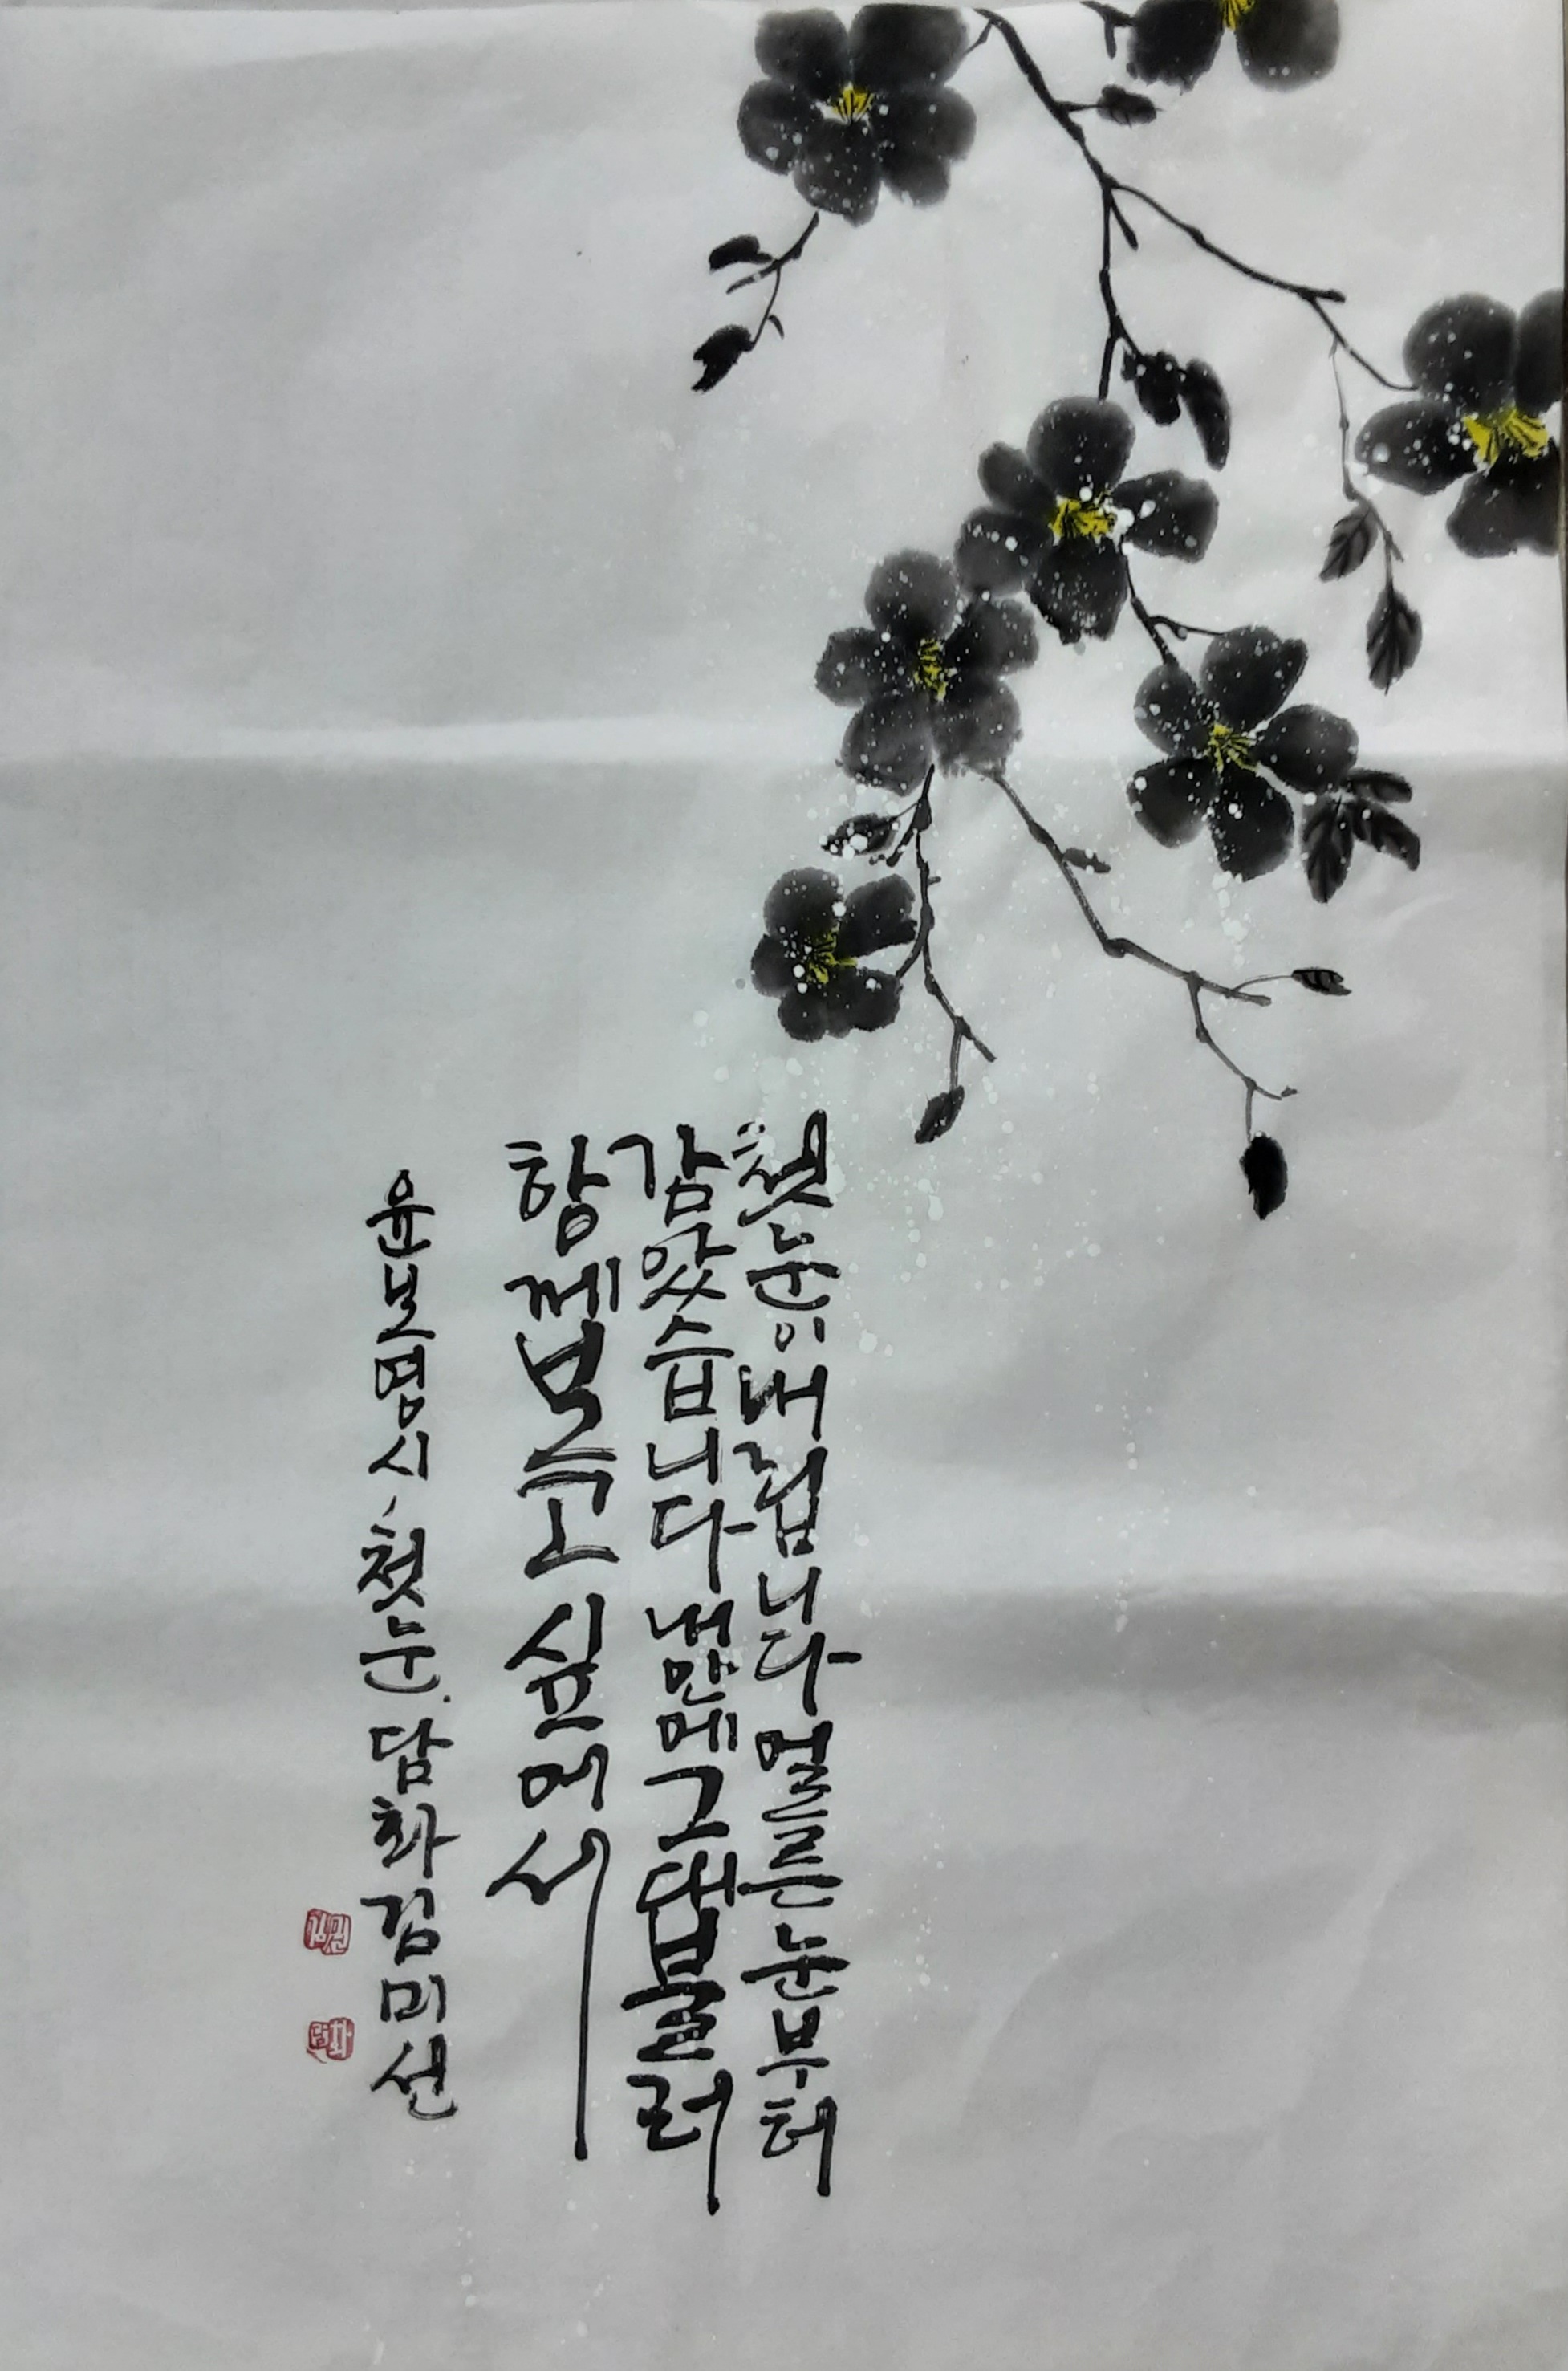 첫눈이 내립니다 얼른 눈부터
감았습니다 내 안에 그대 불러
함께 보고 싶어서
윤보영 시, 첫눈. 담화 김미선